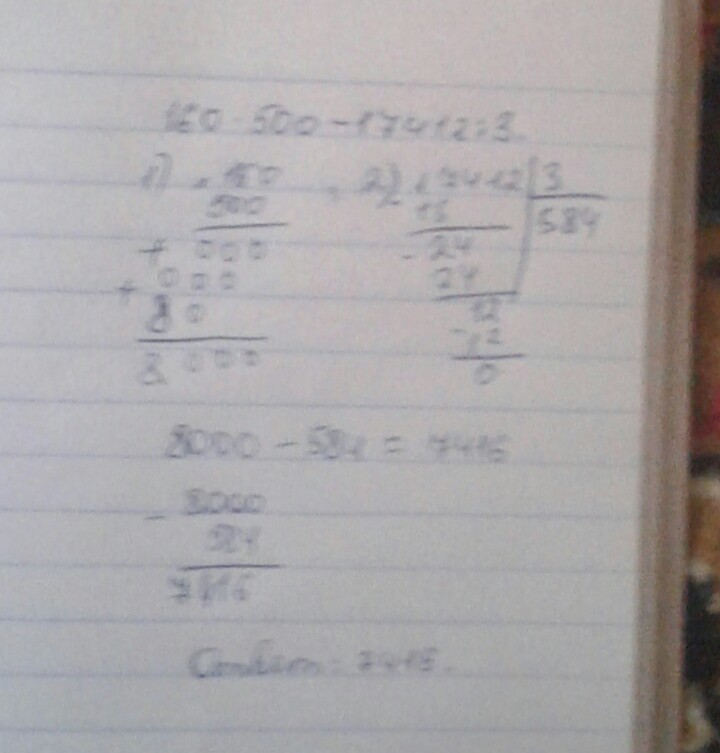 160 · 500 - 17412 : 3
1) × 160
500
+ 000
+ 000
80
8000
2) 17412 | 3
15 584
- 24
24
12
- 12
0
8000 - 584 = 7416
- 8000
584
7416
Ответ: 7416.